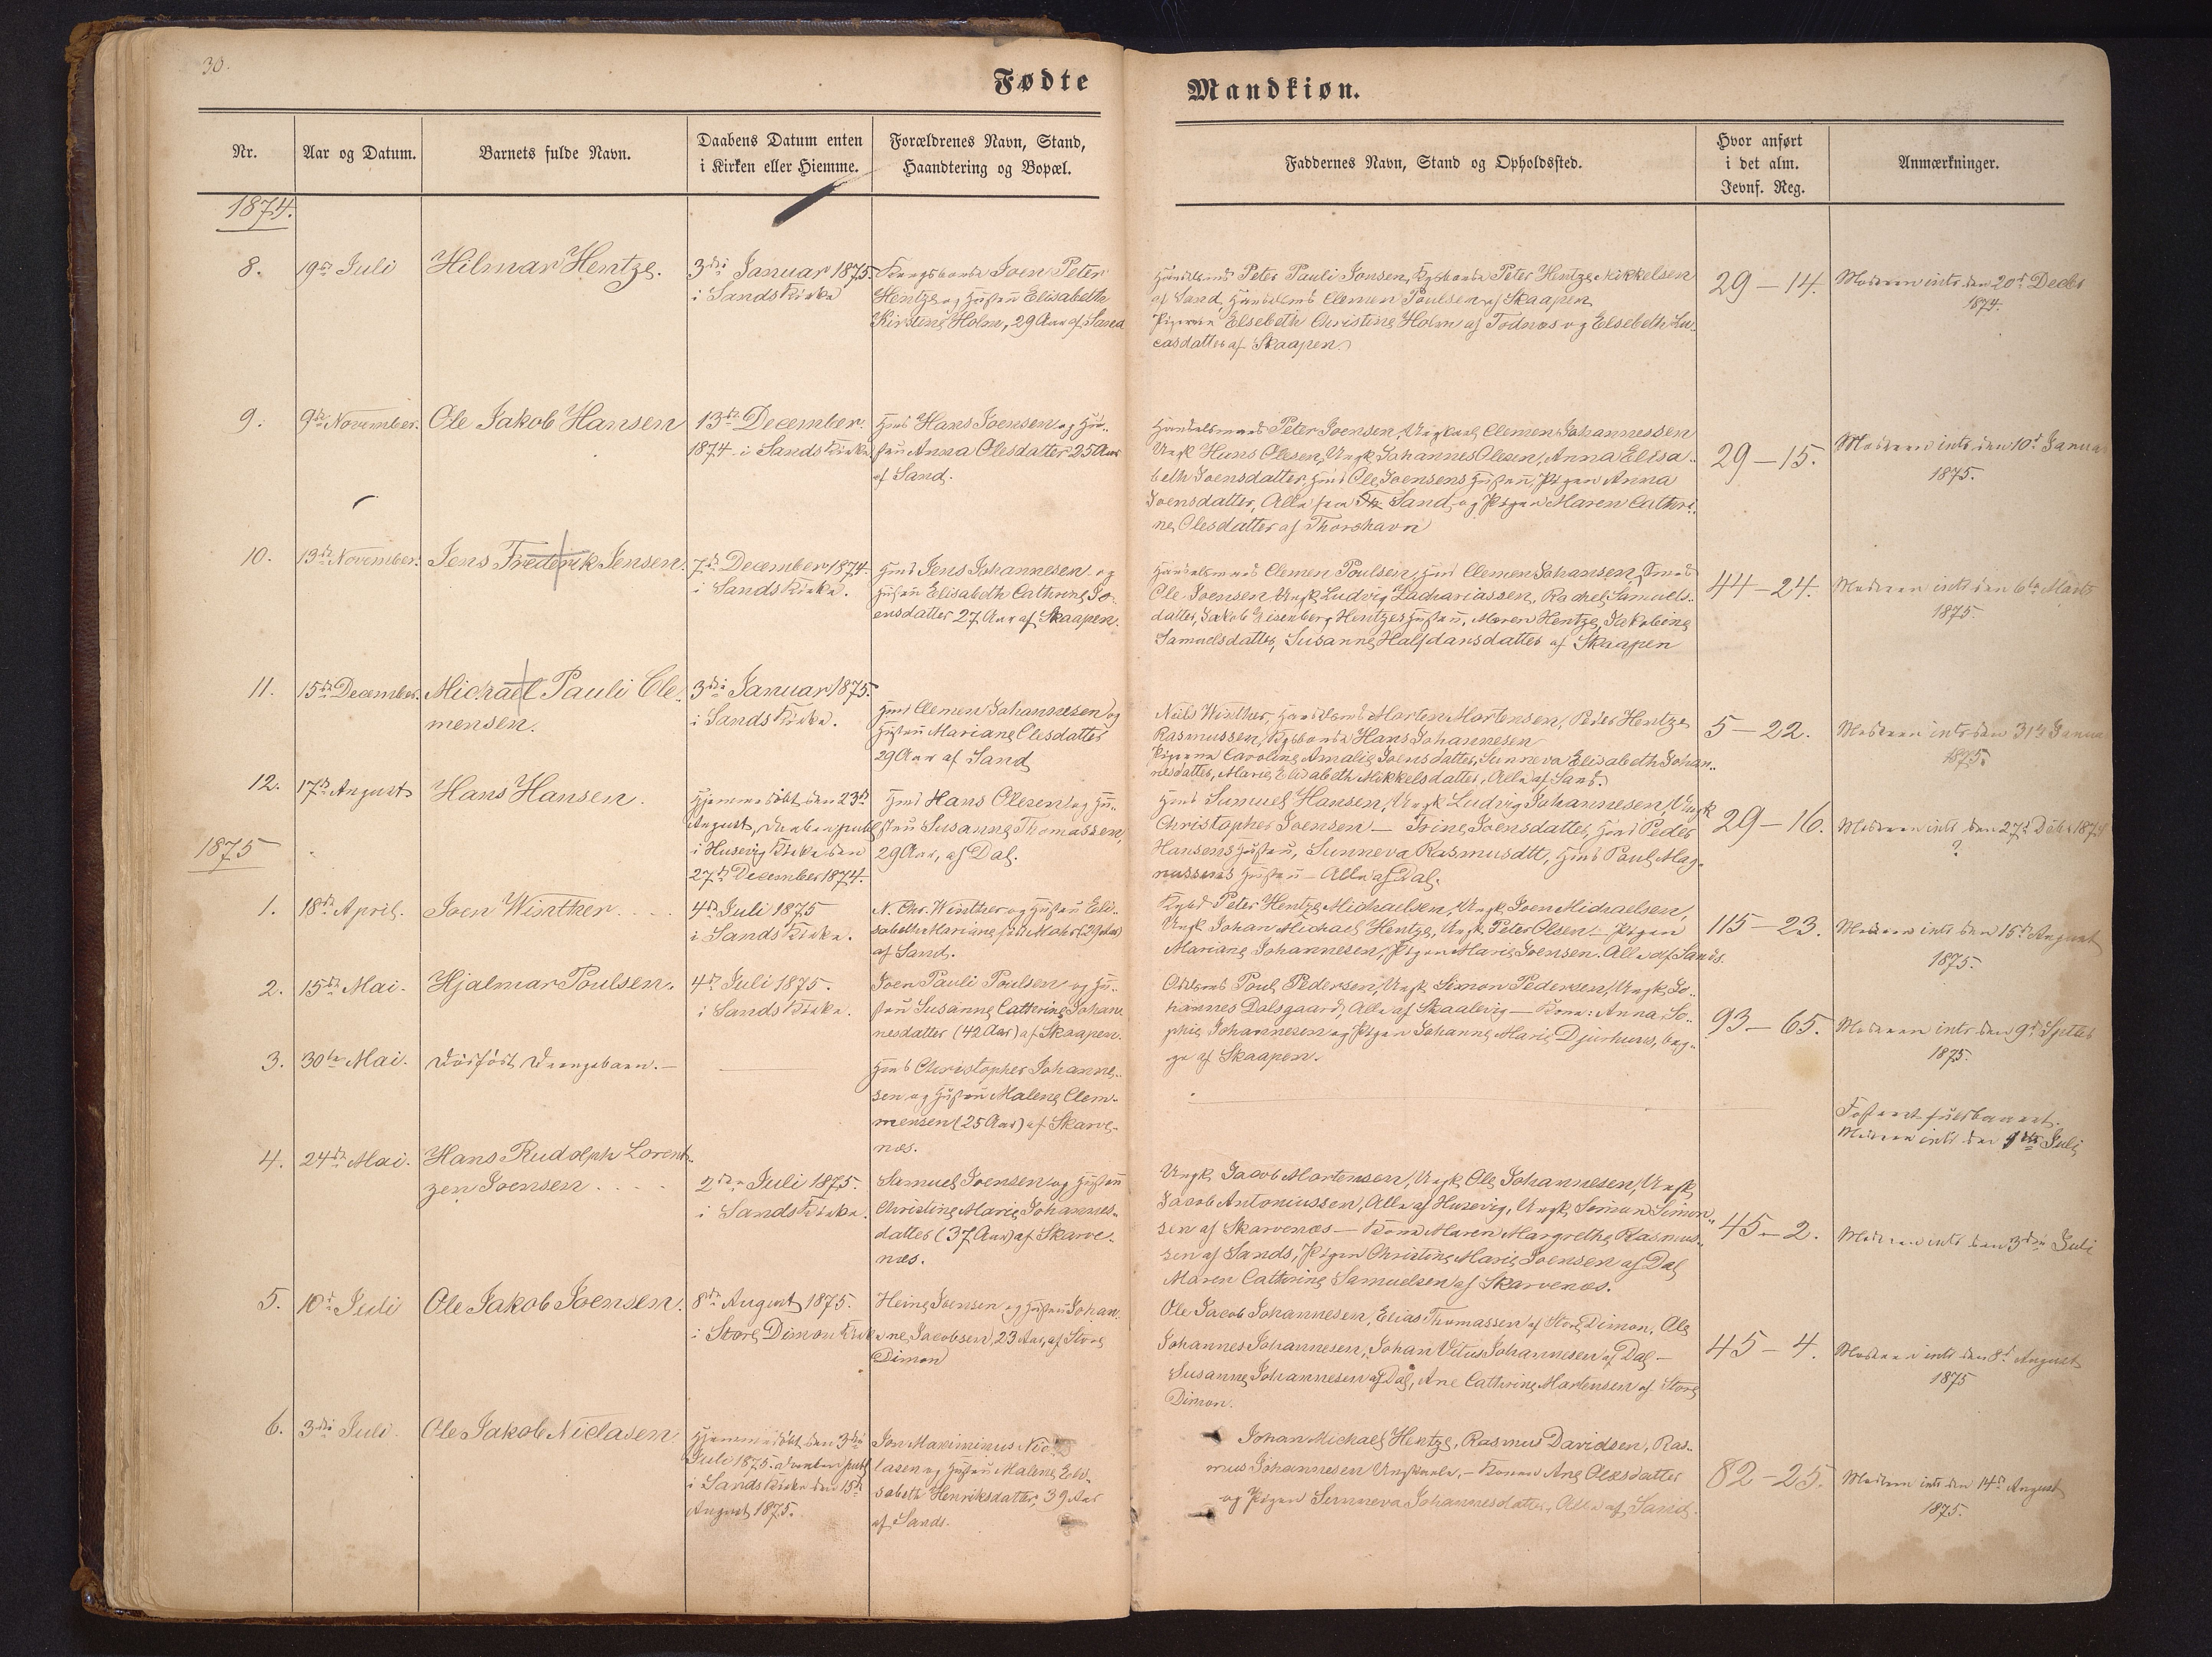 30.
Fødte
Mandkiøn.
Nr.
Aar og Datum.
Barnets fulde Navn.
Daabens Datum enten
i Kirken eller Hiemme.
Forældrenes Navn, Stand,
Haandtering og Bopæl.
Faddernes Navn, Stand og Opholdssted.
Hvor anført
i det alm.
Jevnf. Reg.
Anmærkninger.
1874.
8.
19de Juli
Hilmar Hentze.
3die Januar 1875.
i Sands Kirke
Kongsbonde Joen Peter
Hentze og Hustru Elisabeth
Kirstine Holm, 29 Aar af Sand
Peter Pauli Jonsen, Peter Hentze Mikkelsen
af Sand, Clemen Poulsen af Skaapen
Pigerne Elsebeth Christine Holm af Todnæs og Elsebeth Lu-
casdatter af Skaapen.
29 — 14.
Moderen intr. den 20de Decbr
1874.
9.
9de November.
Ole Jakob Hansen
13de December
1874 i Sands Kirke
Hmd Hans Joensen og Hu-
stru Anna Olesdatter 25 Aar
af Sand.
Handelsmand Peter Joensen, Ungkarl Clemen Johannessen
Ungk Hans Olesen, Ungk Johannes Olesen, Anna Elisa-
beth Joensdatter, Hmd Ole Joensens Hustru, Pigen Anna
Joensdatter, Alle fra Sand og Pigen Maren Cathri-
ne Olesdatter af Thorshavn
29 — 15.
Moderen intr. den 10de Januar
1875.
10.
13de November.
Jens Frederik Jensen.
7de December 1874.
i Sands Kirke.
Hmd Jens Johannesen og
Hustru Elisabeth Cathrine Jo-
ensdatter 27 Aar af Skaapen.
Clemen Poulsen, Hmd Clemen Johansen,
Ole Joensen, Ungk Ludvig Zachariassen, Rachel Samuels-
datter, Jakob Hentzes Hustru, Maren Hentze, Jakobine
Samuelsdatter, Susanne Halfdansdatter af Skaapen
44 — 24.
Moderen intr. den 6te Marts
1875.
11.
15de December.
Michael Pauli Cle-
mensen.
3die Januar 1875.
i Sands Kirke.
Hmd Clemen Johannesen og
Hustru Mariane Olesdatter
29 Aar af Sand
Niels Winther, Morten Mortensen, Peder Hentze
Rasmussen, Hans Johannesen
Pigerne Caroline Amalie Joensdatter, Sunneva Elisabeth Johan-
nesdatter, Marie Elisabeth Mikkelsdatter, Alle af Sand.
5 — 22.
Moderen intr. den 31te Januar
1875.
12.
17de August
Hans Hansen.
Hjemmedøbt den 23de
August, Daaben publ.
i Husevig Kirke den
27de December 1874.
Hmd Hans Olesen og Hu-
stru Susanne Thomassen,
29 Aar, af Dal.
Hmd Samuel Hansen, Ungk Ludvig Johannesen, Ungk
Christopher Joensen — Trine Joensdatter, Hmd Peder
Hansens Hustru, Sunneva Rasmusdtt, Hmd Poul Mag-
nussens Hustru — Alle af Dal.
29 — 16.
Moderen intr. den 27de Dcbr 1874
?
1875
1.
18de April.
Joen Winther . . . .
4de Juli 1875
i Sands Kirke.
N. Chr. Winther og Hustru Eli-
sabeth Mariane født Mohr (29 Aar)
af Sand.
Peter Hentze Michaelsen, Ungk Joen Michaelsen,
Ungk Johan Michael Hentze, Ungk Peter Olsen — Pigen
Mariane Johannesen, Pigen Marie Joensen. Alle af Sands.
115 — 23.
Moderen intr. den 15de August
1875.
2.
15de Mai.
Hjalmar Poulsen.
4de Juli 1875.
i Sands Kirke.
Joen Pauli Poulsen og Hu-
stru Susanne Cathrine Johan-
nesdatter (42 Aar) af Skaapen.
Poul Pedersen, Ungk Simon Pedersen, Ungk Jo-
hannes Dalsgaard, Alle af Skaalevig — Kone: Anna So-
phie Johannesen og Pigen Johanne Marie Djurhuus, beg-
ge af Skaapen.
93 — 65.
Moderen intr. den 9de Septbr
1875.
3.
30te Mai.
Dødfødt Drengebarn. —
Hmd Christopher Johanne-
sen og Hustru Malene Clem-
mensen (25 Aar) af Skarve-
næs.
Fostret fuldbaaret.
Moderen intr. den Juli
4.
24de Mai.
Hans Rudolph Lorent-
zen Joensen . . . .
2den Juli 1875.
i Sands Kirke.
Samuel Joensen og Hustru
Christine Marie Johannes-
datter (37 Aar) af Skarve-
næs.
Ungk. Jacob Mortensen, Ungk Ole Johannesen, Ungk
Jacob Antoniussen, Alle af Husevig, Ungk Simon Simon-
sen af Skarvenæs — Kone Maren Margrethe Rasmus-
sen af Sands, Pigen Christine Marie Joensen af Dal
Maren Cathrine Samuelsen af Skarvenæs.
45 — 2.
Moderen intr. den 3die Juli
5.
10de Juli
Ole Jakob Joensen.
8de August 1875.
i Store Dimon Kirke
Heine Joensen og Hustru Johan-
ne Jacobsen, 23 Aar, af Store
Dimon
Ole Jacob Johannesen, Elias Thomassen af Store Dimon, Ole
Johannes Johannesen, Johan Vitus Johannesen af Dal —
Susanne Johannesen af Dal, Ane Cathrine Mortensen af Store
Dimon.
45 — 4.
Moderen intr. den 8de August
1875
6.
3die Juli.
Ole Jakob Niclasen.
Hjemmedøbt den 3die
Juli 1875. Daaben publ
i Sands Kirke den 15de
August 1875.
Jon Maximinus Nic-
lasen og Hustru Malene Eli-
sabeth Henriksdatter, 39 Aar
af Sands.
Johan Michael Hentze, Rasmus Davidsen, Ras-
mus Johannesen Ungkarle, — Konen Ane Olesdatter
og Pigen Sunneva Johannesdatter, Alle af Sand.
82 — 25.
Moderen intr. den 14de August
1875.